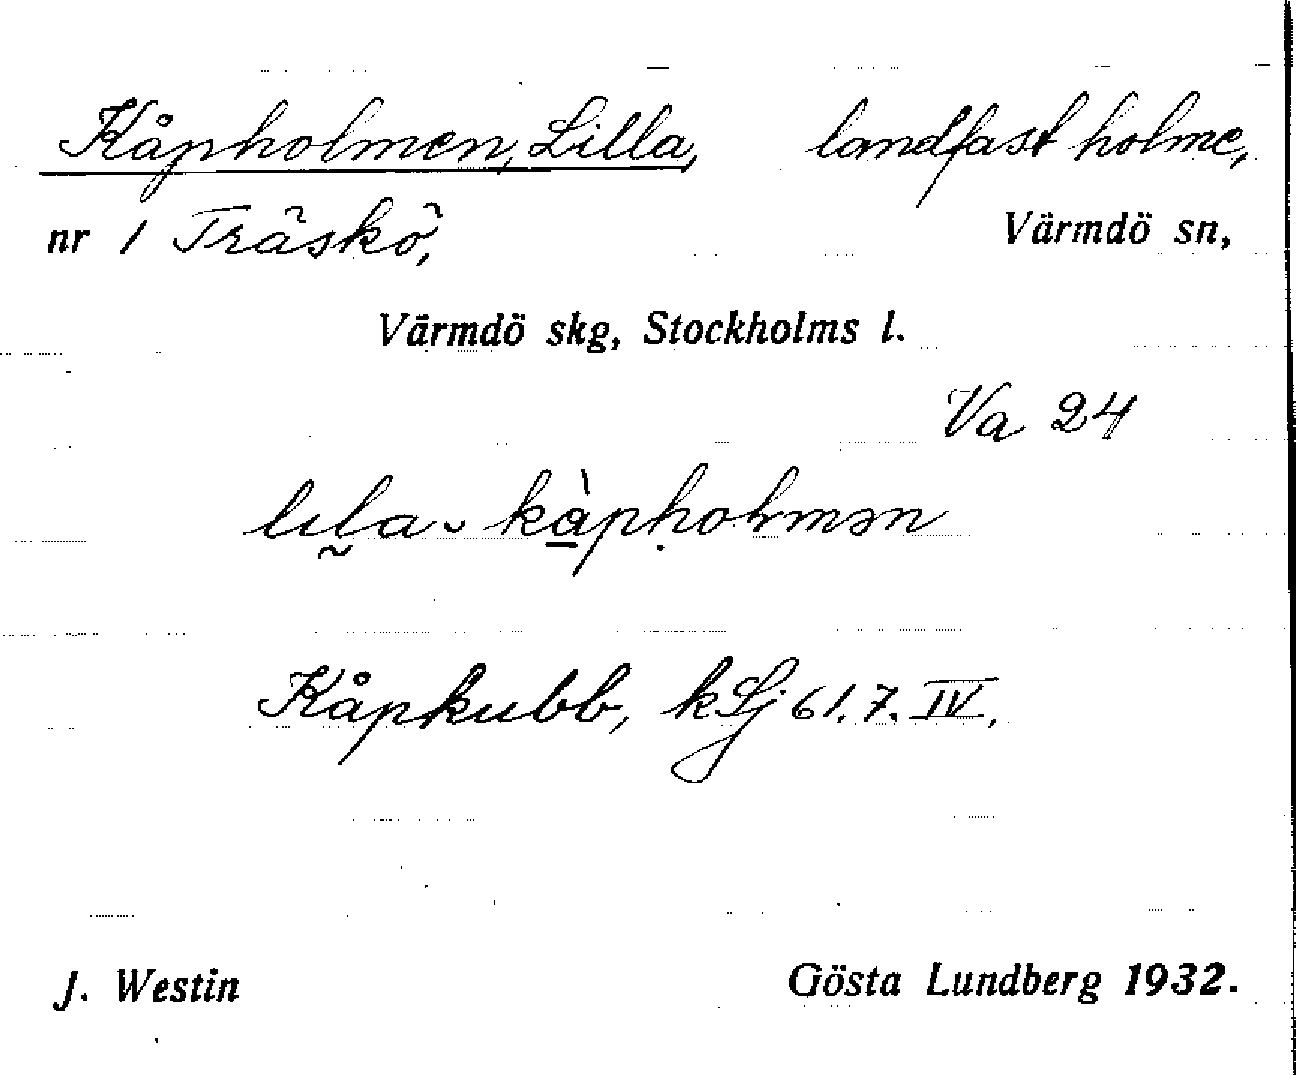 Kåpholmen, Lilla, landfast holme,
nr 1 Träskö, Värmdö sn,
Värmdö skg, Stockholms l.
Va 24
lıla- kàpholmən
Kåpkubb, kSj 61.7. IV.
J. Westin Gösta Lundberg 1932.